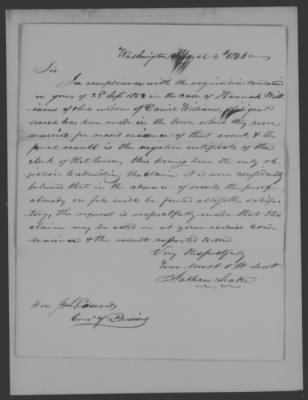 Washington
Sir
In compliance with the requisition contained
in yours of 28 Sept 1852 in the case of Hannah Will-
iams of Ohio widow of Daniel Williams, diligent
search has been made in the town where they were
married for record evidence of that event, & the
only result is the negative certificate of the
clerk of that town, this being been the only ob-
jection to admitting the claim it is now confidently
believed that in the absence of records the proof
already on file will be found altogether satisfac-
tory, the request is respectfully made that the
claim may be acted on at your earliest con-
venience & the result reported to me
Very Respectfully
Your Most Obt Servt
Nathan
Hon J L Edwards
Comr of Pensions